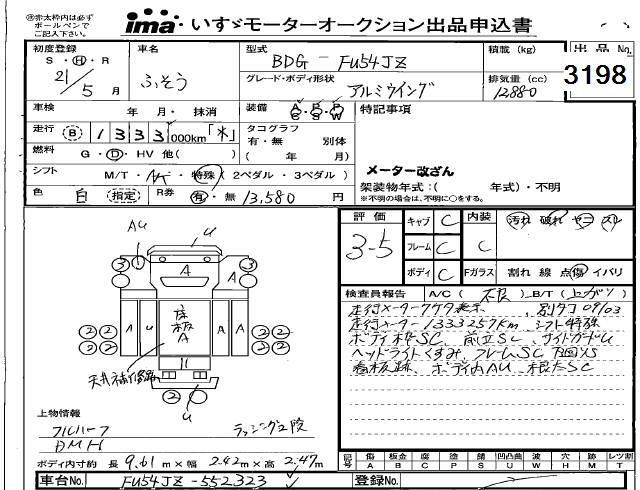 ㊟赤太枠内は必ず
ボールペンで
ご記入下さい。
ima いすゞモーターオークション出品申込書
初度登録
S ・ H ・ R
21/5 月
車名
ふそう
型式
BDG - FU54JZ
グレード・ボディ形状
アルミウイング
積載 (kg)
排気量 (cc)
12880
出品 No.
3198
車検 年 月・ 抹消
装備 A B P
S S W
特記事項
走行 B 1333 000km「*」
タコグラフ
有・無 別体
( 年 月)
燃料 G・D・HV 他( )
メーター改ざん
シフト M/T・A/T・特殊 (2ペダル・3ペダル)
架装物年式:( 年式)・不明
※不明の場合は、不明に○をする。
色 白 指定 R券 有・無 13,580 円
評価
3-5
キャブ C
フレーム C
ボディ C
内装
C
Fガラス
汚れ 破れ ヤニ スレ
割れ 線 点傷 イバリ
検査員報告 A/C ( 不良 ) B/T (
走行メーター
走行メーター1333257km シフト特殊
ボディ枠SC
ヘッドライトくすみ フレームSC
看板跡 ボディ内AU
AU
U
A
A
A
3
3
A
U
床板A
U
A
2 2
2 2
2 2
2 2
U
上物情報
フルハーフ
DMH
ラッシング2段
ボディ内寸約 長 9.61 m×幅 2.42 m×高 2.47 m
記号
傷 板金 腐 塗 錆 凹凸曲 波 穴 跡 レツ割
A B C P S U W H M T
車台No. FU54JZ-552323
登録No.